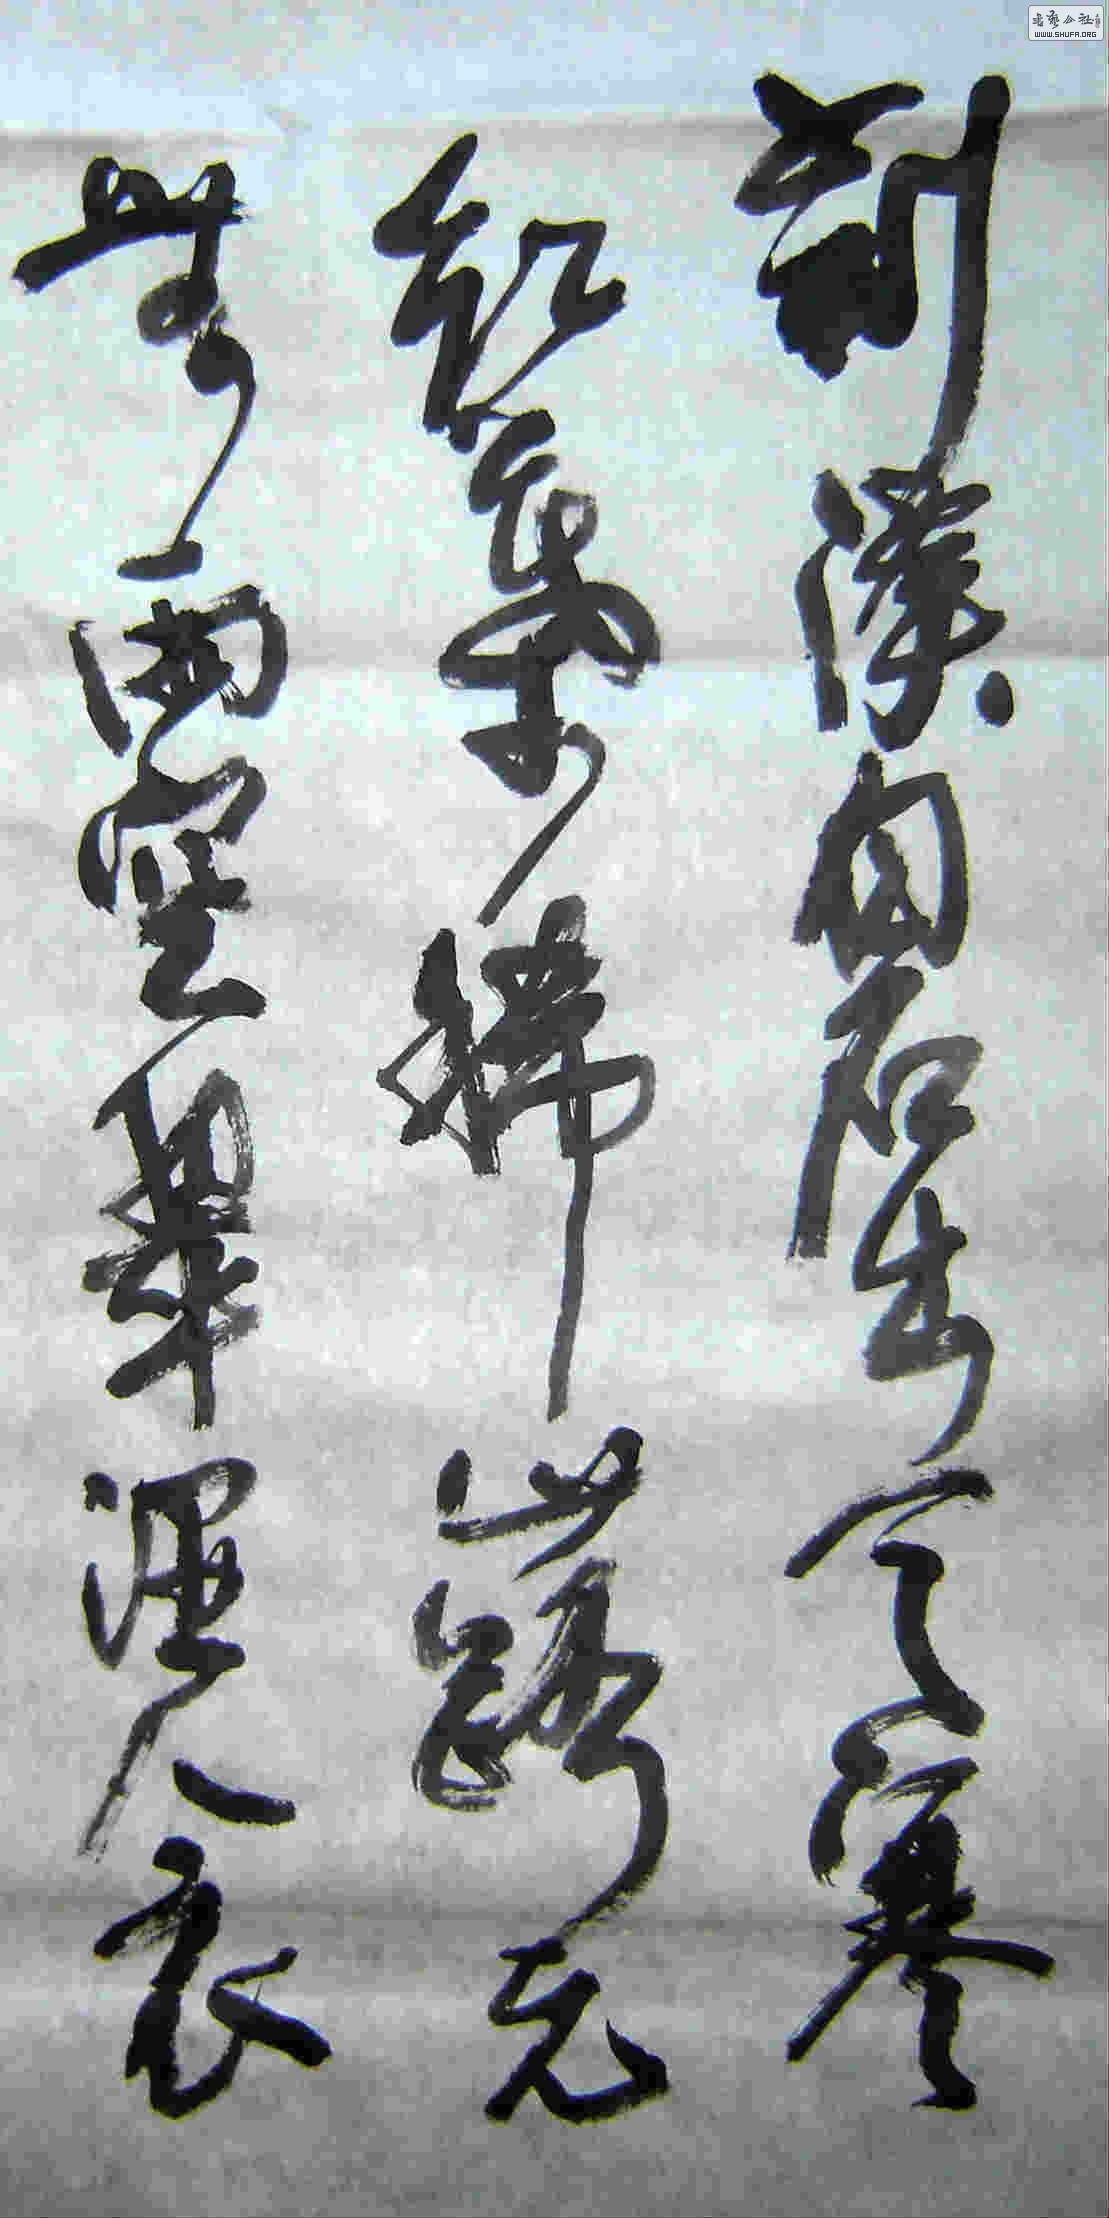 荆溪白石出天寒
紅葉稀山路元
無雨空翠湿人衣
书艺公社
WWW.SHUFA.ORG